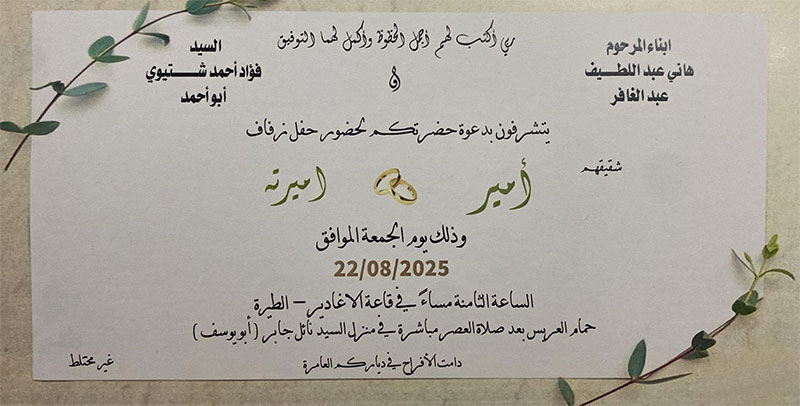 ربي أكتب لهم أجمل الحظوظ وأكمل لهما التوفيق
ابناء المرحوم
هاني عبد اللطيف
عبد الغافر
و
السيد
فؤاد احمد شتيوي
أبو أحمد
يتشرفون بدعوة حضرتكم لحضور حفل زفاف
شقيقهم
أمير اميرته
وذلك يوم الجمعة الموافق
22/08/2025
الساعة الثامنة مساءً في قاعة الاغادير - الطيرة
حمام العريس بعد صلاة العصر مباشرة في منزل السيد نائل جابر (أبو يوسف)
دامت الأفراح في دياركم العامرة
غير مختلط